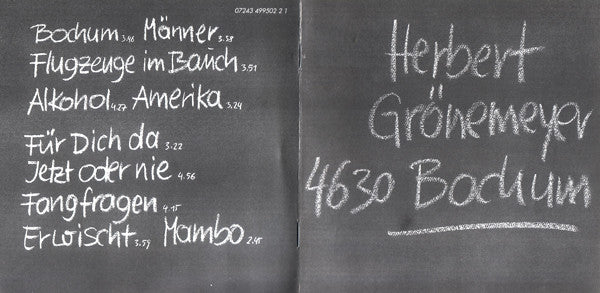 07243 499502 2 1
Bochum 3.46 Männer 3.58
Flugzeuge im Bauch 3.51
Alkohol 4.27 Amerika 3.24
Für Dich da 3.22
Jetzt oder nie 4.56
Fangfragen 4.15
Erwischt 3.59 Mambo 2.45
Herbert
Grönemeyer
4630 Bochum